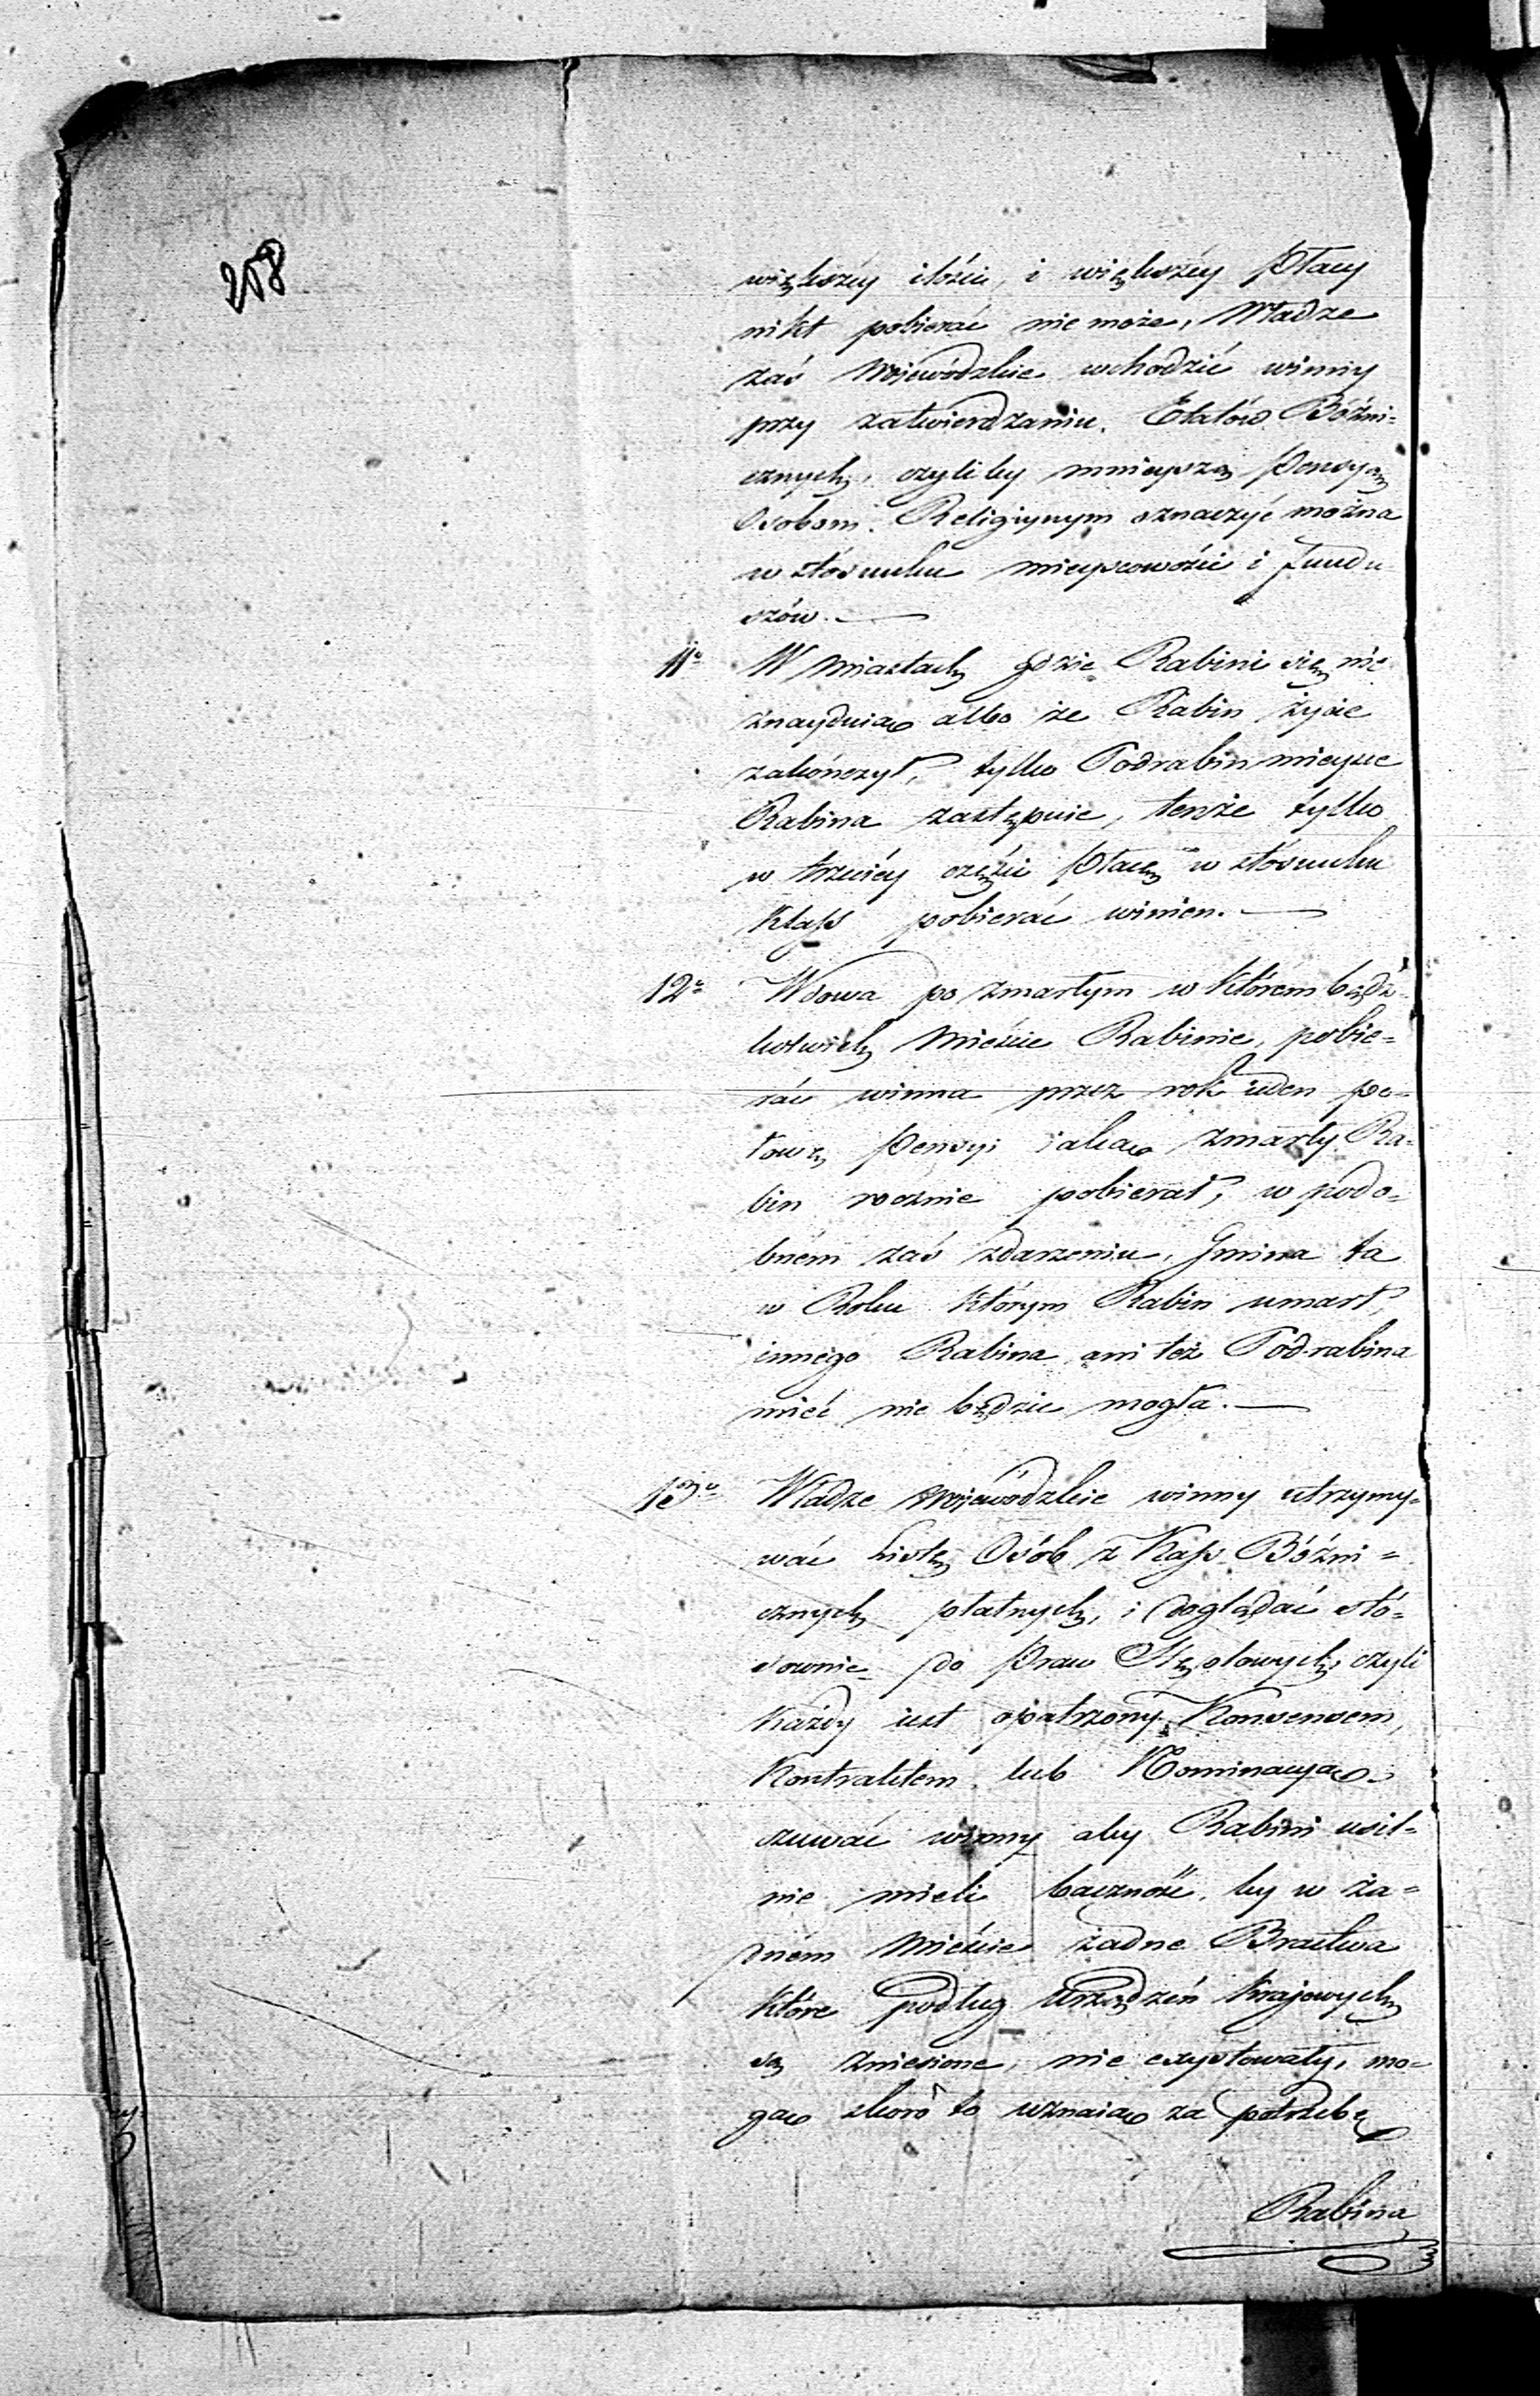 258
większéy ilości, i większéy Płacy
nikt pobierać nie może, Władze
zaś Wojewódzkie wchodzić winny
przy zatwierdzaniu Etatów Bóżni=
cznych, czyliby mnieyszą Pensyą
Osobom Religiynym oznaczyć można
w stósunku mieyscowości i fundu
szów. —
11o W Miastach gdzie Rabini się nie
znayduią albo że Rabin życie
zakończył, tylko Podrabin mieysce
Rabina zastępuie, tenże tylko
w trzeciéy części Płacę w stósunku
Klass pobierać winien. —
12o Wdowa po zmarłym w którém bądź
kolwiek Mieście Rabinie, pobie=
rać winna przez rok ieden po=
łowę Pensyi iaką zmarły Ra=
bin rocznie pobierał, w podo=
bném zaś zdarzeniu, Gmina ta
w Roku którym Rabin umarł,
innego Rabina ani też Podrabina
mieć nie będzie mogła. —
13o Władze Wojewódzkie winny utrzymy=
wać Listę Osób z Kass Bóżni=
cznych płatnych, i doglądać stó=
sownie do Praw Stęplowych, czyli
każdy iest opatrzony Konsensem,
Kontraktem lub Nominacyą.
czuwać winny aby Rabini usil=
nie mieli baczność, by w ża=
dném Mieście żadne Bractwa
które podług Urządzeń Krajowych
są zniesione, nie exystowały, mo=
gąc skoro to uznaią za potrzebę
Rabina